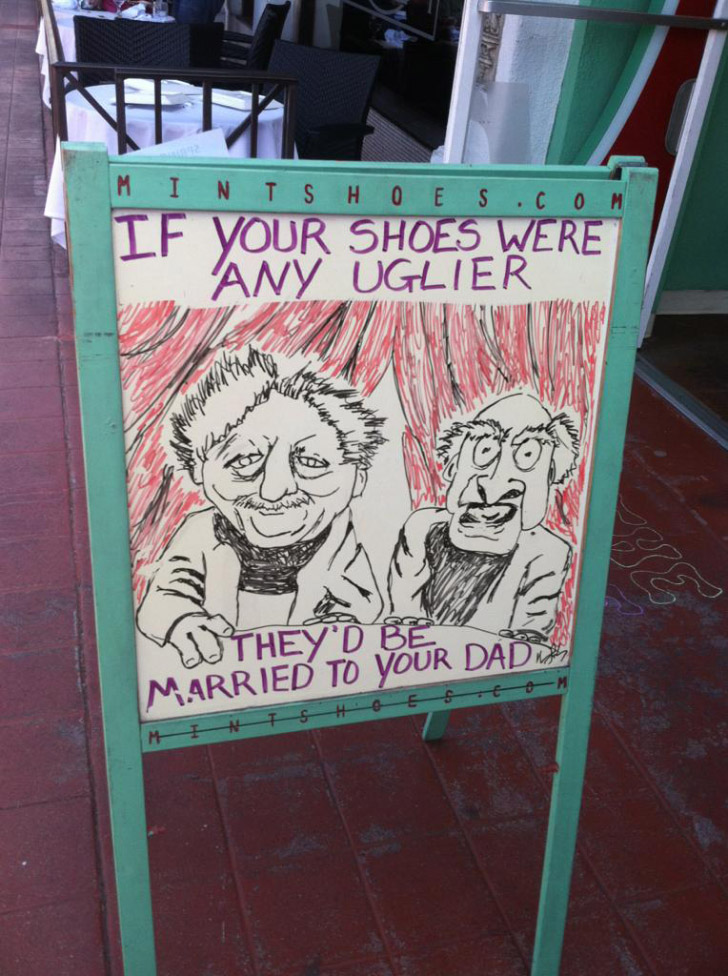 MINTSHOES.COM
IF YOUR SHOES WERE
ANY UGLIER
THEY'D BE
MARRIED TO YOUR DAD
MINTSHOES.COM